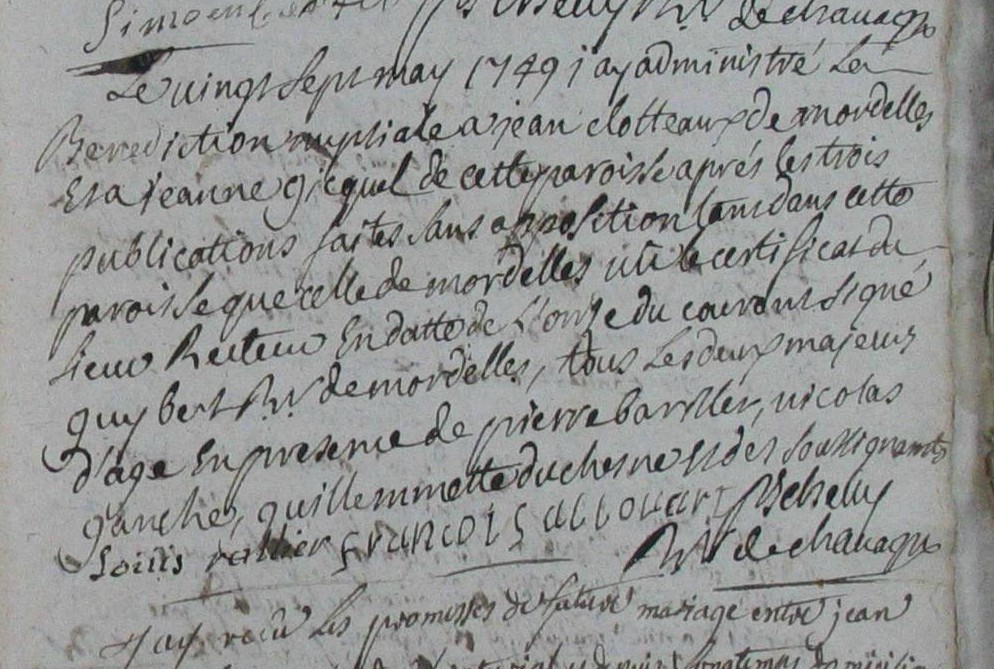 de chavagne
Le vingt sept may 1749 j ay administré La
Benediction nuptiale a jean clotteaux de mordelles
Et a jeanne gicquel de cette paroisse aprés les trois
publications faites sans opposition tant dans cette
paroisse que celle de mordelles vû le certificat du
sieur Recteur En datte de L'onze du courant signé
guybert Rr de mordelles, tous Les deux majeurs
d'age En presence de pierre barviler, nicolas
ganche, guillemmette duchesne et des soussignants
Loüis rallier FRANCOIS aLLOUART
Rr de chavagne
J'ay recu Les promesses de futur mariage entre jean